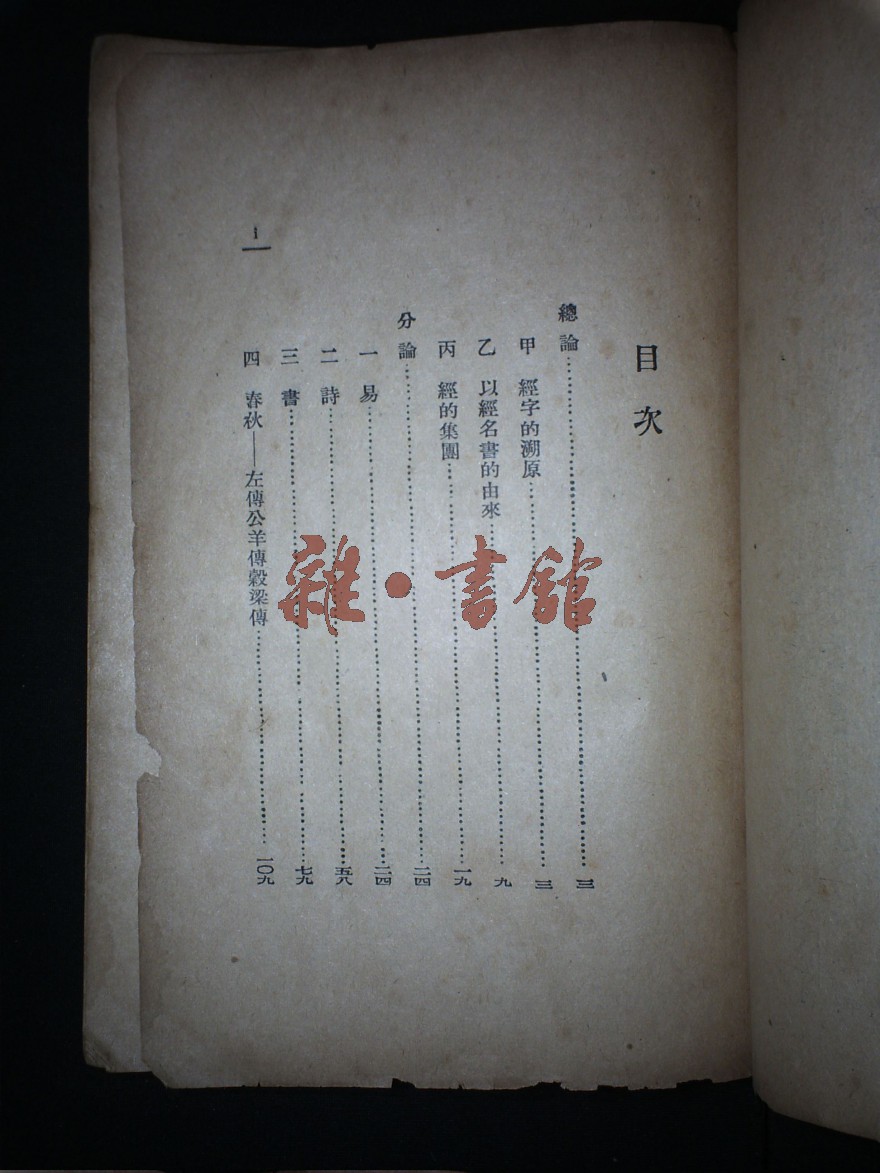 目次
總論……………………三
甲　經字的溯原……………………三
乙　以經名書的由來……………………九
丙　經的集團……………………一九
分論……………………二四
一　易……………………二四
二　詩……………………五八
三　書……………………七九
四　春秋——左傳公羊傳穀梁傳……………………一〇九
i
雜·書館